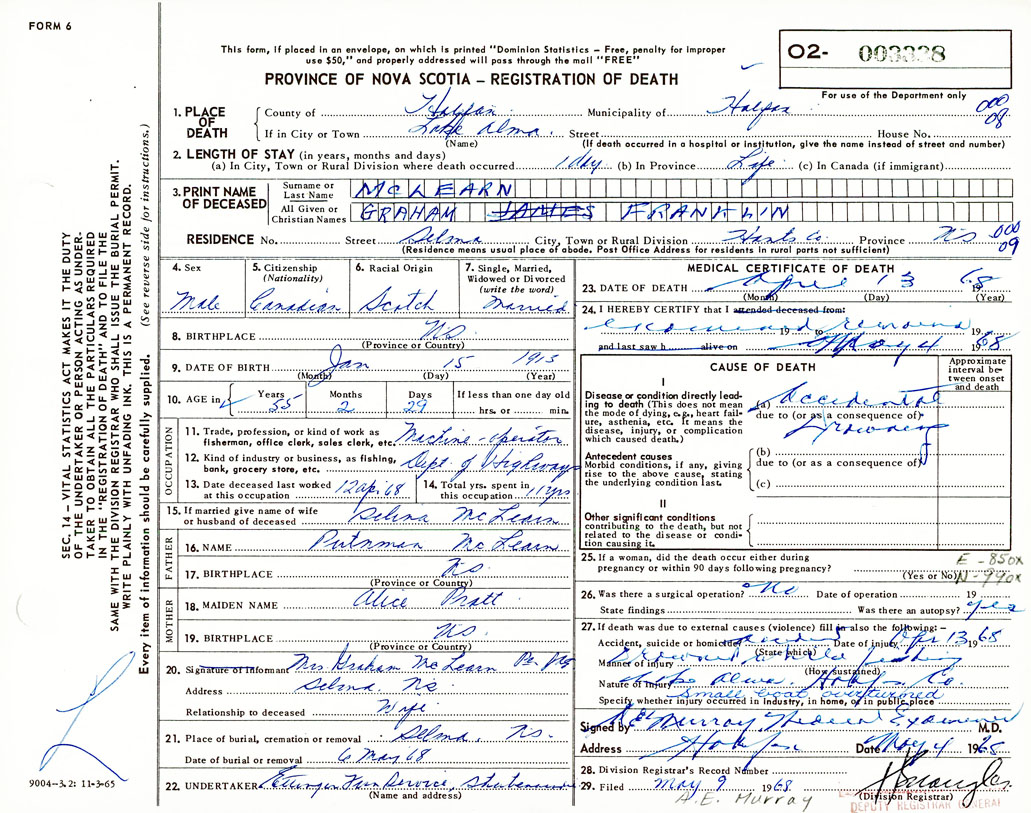 FORM 6
This form, if placed in an envelope, on which is printed "Dominion Statistics – Free, penalty for improper
use $50," and properly addressed will pass through the mail "FREE"
PROVINCE OF NOVA SCOTIA – REGISTRATION OF DEATH
O2- 003328
For use of the Department only
000
08
1. PLACE OF DEATH
County of Halifax Municipality of Halifax
If in City or Town Lake Alma. Street House No.
(Name) (If death occurred in a hospital or institution, give the name instead of street and number)
2. LENGTH OF STAY (in years, months and days)
(a) In City, Town or Rural Division where death occurred 1 day (b) In Province Life (c) In Canada (if immigrant)
3. PRINT NAME OF DECEASED
Surname or Last Name MCLEARN
All Given or Christian Names GRAHAM JAMES FRANKLIN
RESIDENCE No. Street Selma City, Town or Rural Division Hants Co. Province NS
000
09
(Residence means usual place of abode. Post Office Address for residents in rural parts not sufficient)
4. Sex Male
5. Citizenship (Nationality) Canadian
6. Racial Origin Scotch
7. Single, Married, Widowed or Divorced (write the word) Married
8. BIRTHPLACE NS.
(Province or Country)
9. DATE OF BIRTH Jan 15 1913
(Month) (Day) (Year)
10. AGE in Years 55 Months 2 Days 29 If less than one day old hrs. or min.
OCCUPATION
11. Trade, profession, or kind of work as fisherman, office clerk, sales clerk, etc. Machine-operator
12. Kind of industry or business, as fishing, bank, grocery store, etc. Dept. of Highways
13. Date deceased last worked at this occupation 12 Ap. 68
14. Total yrs. spent in this occupation 11 yrs
15. If married give name of wife or husband of deceased Selina McLearn
FATHER
16. NAME Putnman McLearn
17. BIRTHPLACE NS
(Province or Country)
MOTHER
18. MAIDEN NAME Alice Pratt
19. BIRTHPLACE NS.
(Province or Country)
20. Signature of informant Mrs. Graham McLearn Per
Address Selma, NS.
Relationship to deceased Wife
21. Place of burial, cremation or removal Selma, NS.
Date of burial or removal 6 May 68
22. UNDERTAKER Ettinger Fun Service,
(Name and address)
MEDICAL CERTIFICATE OF DEATH
23. DATE OF DEATH April 13 1968
(Month) (Day) (Year)
24. I HEREBY CERTIFY that I attended deceased from:
examined 19 to remains 19
and last saw h alive on May 4 1968
CAUSE OF DEATH
Approximate interval between onset and death
I
Disease or condition directly leading to death (This does not mean the mode of dying, e.g., heart failure, asthenia, etc. It means the disease, injury, or complication which caused death.)
(a) Accidental
due to (or as a consequence of)
Drowning
Antecedent causes
Morbid conditions, if any, giving rise to the above cause, stating the underlying condition last.
(b)
due to (or as a consequence of)
(c)
II
Other significant conditions
contributing to the death, but not related to the disease or condition causing it.
25. If a woman, did the death occur either during pregnancy or within 90 days following pregnancy?
(Yes or No)
E - 850X
N - 990X
26. Was there a surgical operation? No Date of operation 19
State findings Was there an autopsy? yes
27. If death was due to external causes (violence) fill in also the following:–
Accident, suicide or homicide accident Date of injury Apr 13 1968
(State which)
Manner of injury Drowned while fishing
(How sustained)
Nature of injury Lake Alma, Halifax Co.
small boat overturned
Specify whether injury occurred in industry, in home, or in public place
Signed by Murray Medical Examiner M.D.
Address Halifax Date May 4 1968
28. Division Registrar's Record Number
29. Filed May 9 1968
(Division Registrar)
A.E. Murray
DEPUTY REGISTRAR GENERAL
SEC. 14 – VITAL STATISTICS ACT MAKES IT THE DUTY
OF THE UNDERTAKER OR PERSON ACTING AS UNDER-
TAKER TO OBTAIN ALL THE PARTICULARS REQUIRED
IN THE "REGISTRATION OF DEATH" AND TO FILE THE
SAME WITH THE DIVISION REGISTRAR WHO SHALL ISSUE THE BURIAL PERMIT.
WRITE PLAINLY WITH UNFADING INK. THIS IS A PERMANENT RECORD.
Every item of information should be carefully supplied. (See reverse side for instructions.)
9004–3.2: 11-3-65